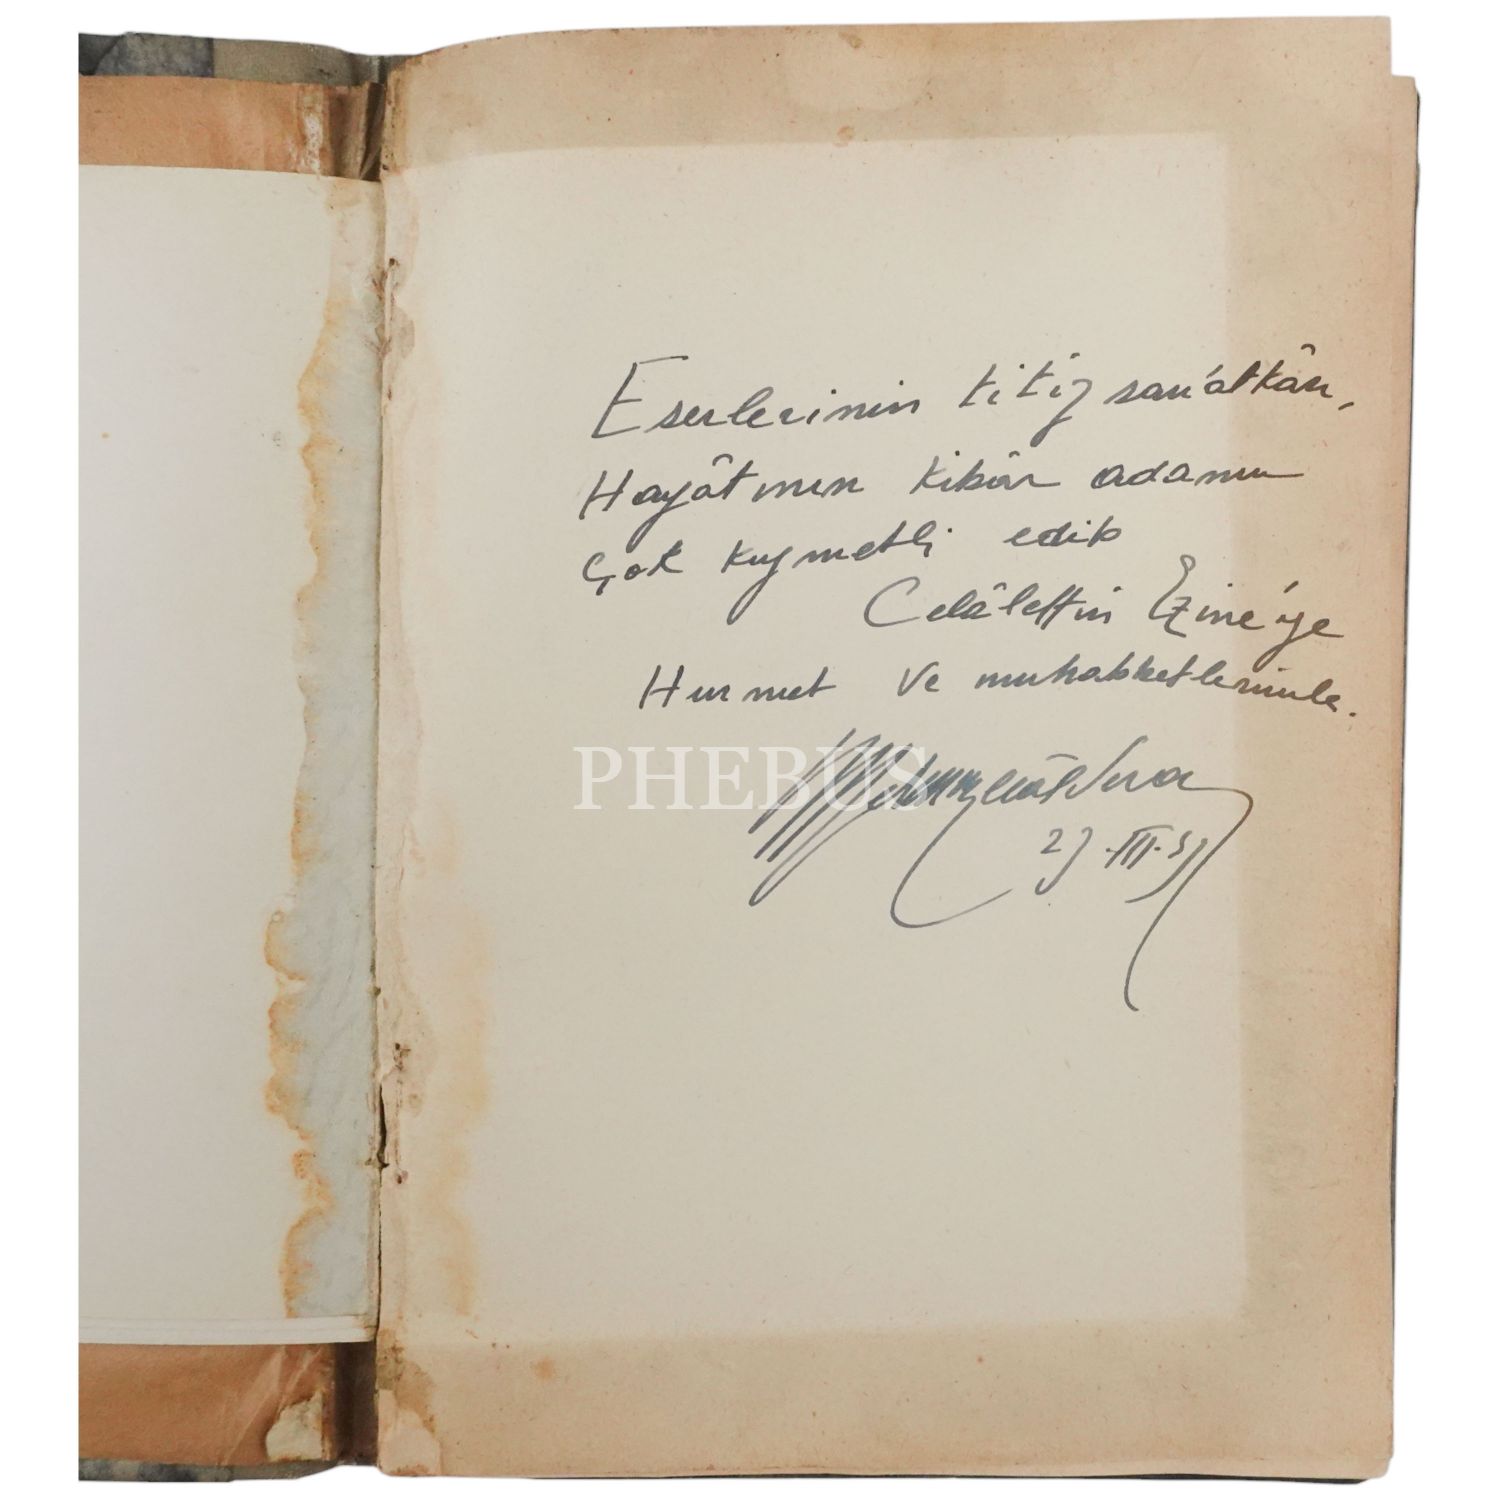 Eserlerinin titiz san'atkârı,
Hayâtının kibâr adamı
Çok kıymetli edib
Celâlettin Ezine'ye
Hürmet ve muhabbetlerimle.
PHEBUS